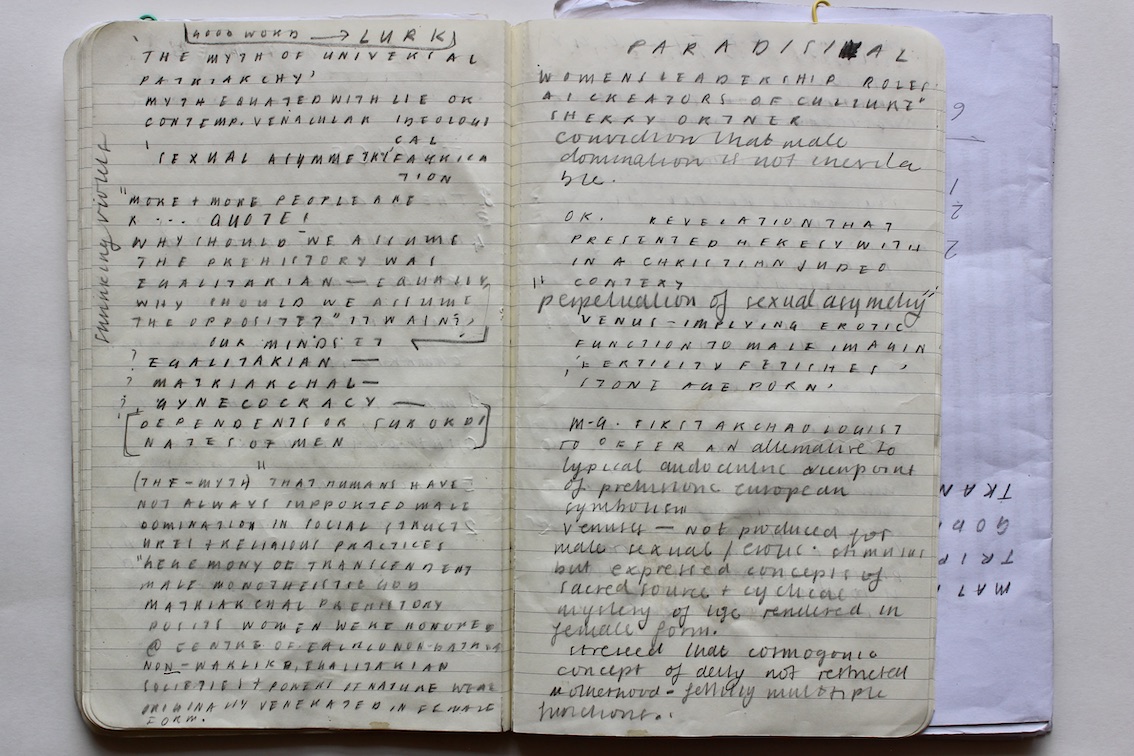 GOOD WORD → LURK
'THE MYTH OF UNIVERSAL
PATRIARCHY'
MYTH EQUATED WITH LIE OR
CONTEMP. VENACULAR IDEOLOGI
CAL
'SEXUAL ASYMMETRY' FABRICA
TION
"MORE + MORE PEOPLE ARE
R... QUOTE!
WHY SHOULD WE ASSUME
THE PREHISTORY WAS
EGALITARIAN — EQUALLY
WHY SHOULD WE ASSUME
THE OPPOSITE?" IT WASN'T,
OUR MINDSET
? EGALITARIAN —
? MATRIARCHAL —
? GYNECOCRACY —
[DEPENDENTS OR SUBORDI
NATES OF MEN]
(THE-MYTH) "THAT HUMANS HAVE
NOT ALWAYS SUPPORTED MALE
DOMINATION IN SOCIAL STRUCT
URES + RELIGIOUS PRACTICES
"HEGEMONY OF TRANSCENDENT
MALE MONOTHEISTIC GOD
MATRIARCHAL PREHISTORY
POSITS WOMEN WERE HONORED
@ CENTRE OF
NON-WARLIKE, EGALITARIAN
SOCIETIES + POWERS OF NATURE WERE
ORIGINALLY VENERATED IN FEMALE
FORM.
shrinking violets
PARADISICAL
WOMENS LEADERSHIP ROLES
AS CREATORS OF CULTURE"
SHERRY ORTNER
conviction that male
domination is not inevita
ble.
OK. REVELATION THAT
PRESENTED HERESY WITH
IN A CHRISTIAN JUDEO
CONTEXT
"perpetuation of sexual asymetry"
VENUS - IMPLYING EROTIC
FUNCTION TO MALE IMAGIN
'FERTILITY FETISHES'
'STONE AGE PORN'
M.G. FIRST ARCHAOLOGIST
TO OFFER AN alternative to
typical androcentric viewpoint
of prehistoric european
symbolism
venuses — not produced for
male sexual / erotic stimulus
but expressed concepts of
sacred source + cyclical
mystery of life rendered in
female form.
stressed that cosmogonic
concept of deity not restricted
motherhood - fertility multiple
functions..
6
1
2
2
TRAN
GOD
TRIP
MAT